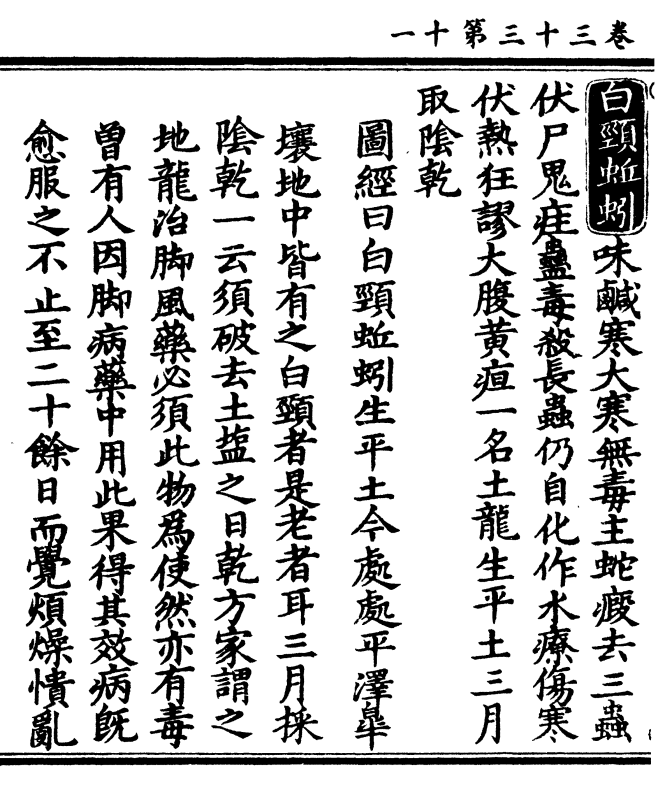 卷三十三第十一
白頸蚯蚓味鹹寒大寒無毒主蛇瘕去三蟲
伏尸鬼疰蠱毒殺長蟲仍自化作水療傷寒
伏熱狂謬大腹黄疸一名土龍生平土三月
取陰乾
圖經曰白頸蚯蚓生平土今處處平澤皐
壤地中皆有之白頸者是老者耳三月採
陰乾一云須破去土塩之日乾方家謂之
地龍治脚風藥必須此物爲使然亦有毒
曽有人因脚病藥中用此果得其效病旣
愈服之不止至二十餘日而覺煩燥憒亂